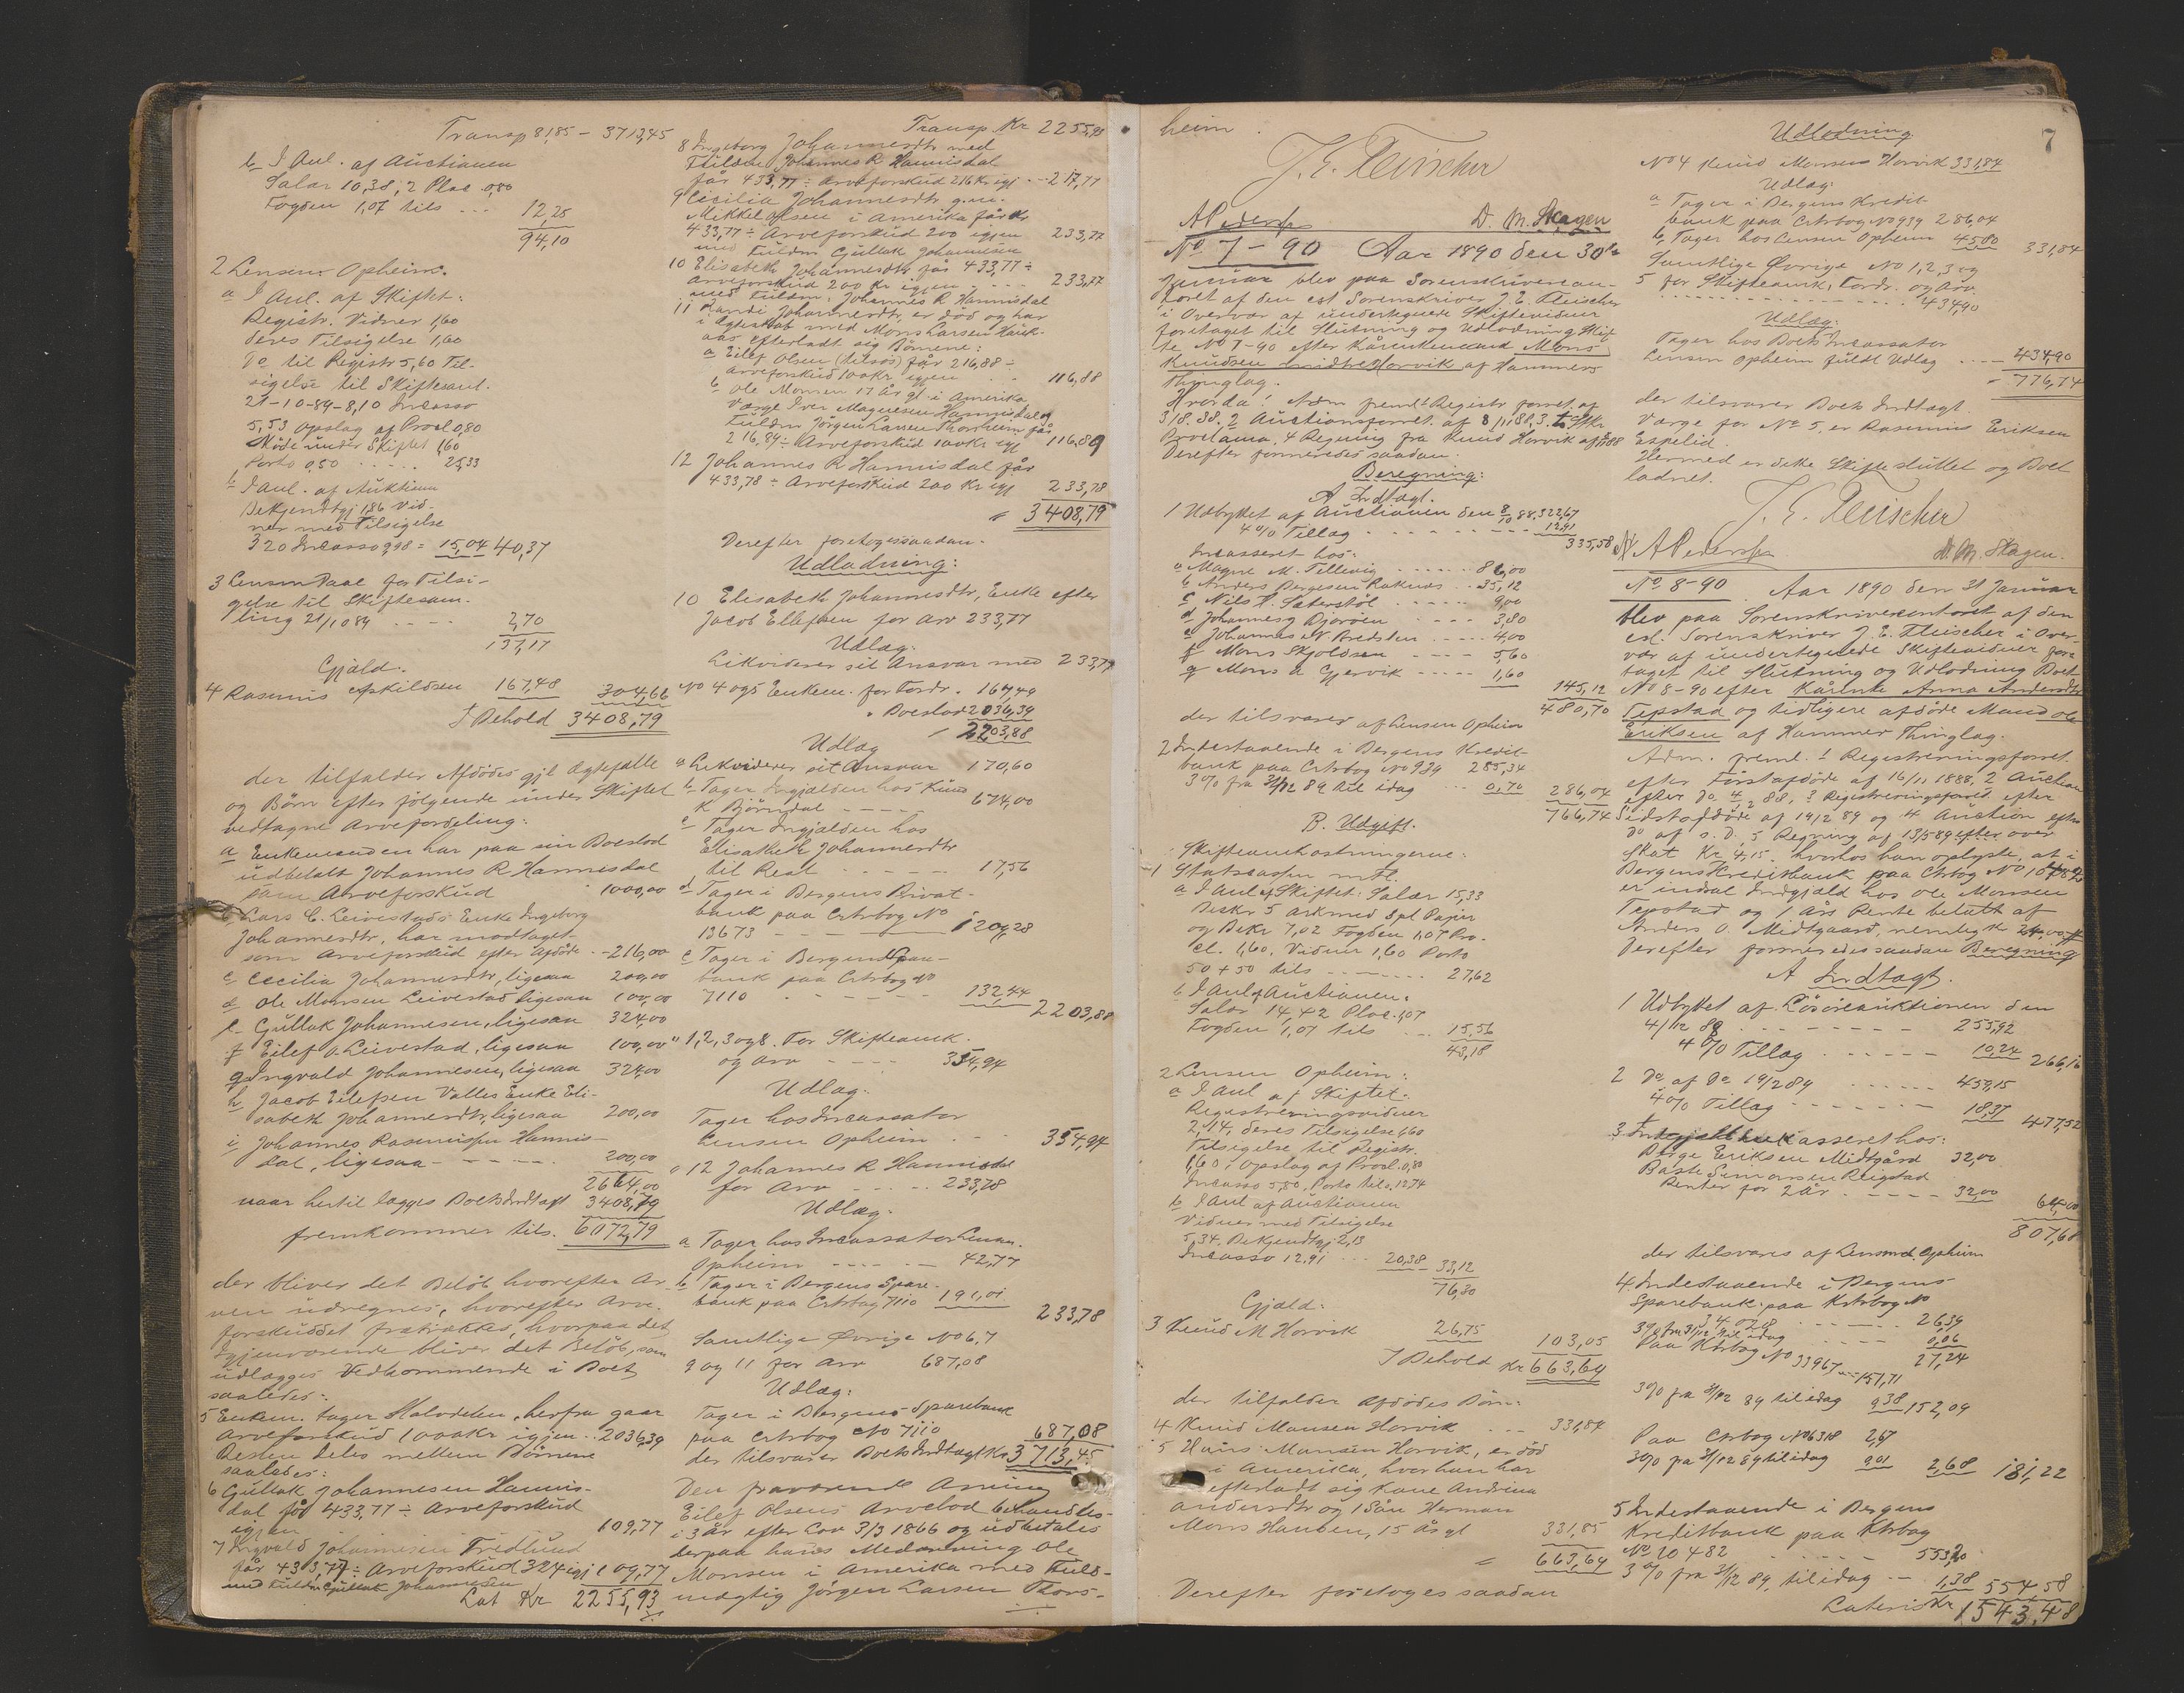 Transp 81,85 - 3713,45
b I Anl. af Auctionen
Salær 10,38, 2 Plac 0,80
Fogden 1,07 tils ... 12,25
94,10
2 Lensm Opheim.
a I Anl. af Skiftet:
Registr. Vidner 1,60
deres Tilsigelse 1,60
Do til Registr 5,60 Til-
sigelse til Skiftesaml.
21-10-89-8,10 Incasso
5,53 Opslag af Procl 0,80
Møde under Skiftet 1,60
Porto 0,50 ..... 25,33
b I Anl. af Auktion
Bekjendtgj 1,86 Vid-
ner med Tilsigelse
3 20 Incasso 9,98 = 15,04 40,37
3 Lensm Daae for Tilsi-
gelse til Skiftesam-
ling 21/10 89 .... 2,70
137,17
Gjæld.
4 Rasmus Askildsen 167,48 304,66
I Behold 3408,79
der tilfalder Afdødes gjl Ægtefælle
og Børn efter følgende under Skiftet
vedtagne Arvefordeling:
a Enkemanden har paa sin Boeslod
udbetalt Johannes R Hannisdal
som Arveforskud 1000,00
b Lars C. Leivestads Enke Ingeborg
Johannesdtr, har modtaget
som Arveforskud efter Afdøde - 216,00
c Cecilia Johannesdtr, ligesaa 200,00
d Ole Monsen Leivestad ligesaa 100,00
e Gulluk Johannesen, ligesaa 324,00
f Eilef O. Leivestad, ligesaa 100,00
g Ingvald Johannesen, ligesaa 324,00
h Jacob Eilefsen Valles Enke Eli-
sabeth Johannesdtr, ligesaa 200,00
i Johannes Rasmussen Hannis-
dal, ligesaa - - - - 200,00
2664,00
naar hertil lægges Boets Indtægt 3408,79
fremkommer tils. 6072,79
der bliver det Beløb hvorefter Ar-
ven udregnes, hvorefter Arve-
forskuddet fratrækkes, hvorpaa det
Igjenværende bliver det Beløb, som
udlægges Vedkommende i Boet
saaledes:
5 Enkem. tager Halvdelen, herfra gaar
Arveforskud 1000 Kr igjen .. 2036,39
Resten deles mellem Børnene
saaledes:
6 Gulluk Johannesen Hannis-
dal får 433,77 ÷ Arveforskud
igjen 109,77
7 Ingvald Johannesen Fredlund
får 433,77 ÷ Arveforskud 324 igj 109,77
med Fuldm Gulluk Johannesen
Lat Kr 2255,93
Transp. Kr 2255,93
8 Ingeborg Johannesdtr med
Fuldm Johannes R Hannisdal
får 433,77 ÷ Arveforskud 216 Kr igj - 217,77
9 Cecilia Johannesdtr g.m.
Mikkel Olsen i Amerika får Kr
433,77 ÷ Arveforskud 200 igjen 233,77
med Fuldm Gulluk Johannesen
10 Elisabeth Johannesdtr får 433,77 ÷
Arveforskud 200 Kr igjen - - - 233,77
med Fuldm: Johannes R Hannisdal
11 Randi Johannesdtr, er død og har
i Ægteskab med Mons Larsen Hauk-
aas efterladt sig Børnene:
a Eilef Olsen (tilsøs) får 216,88 ÷
Arveforskud 100 Kr igjen .. 116,88
b Ole Monsen 17 År gl. i Amerika
Værge Iver Magnesen Hannisdal og
Fuldm Jørgen Larsen Thorsheim får
216,89 ÷ Arveforskud 100 Kr igj 116,89
12 Johannes R Hannisdal får
433,78 ÷ Arveforskud 200 Kr igj 233,78
" 3408,79
Derefter foretoges saadan.
Udlodning:
10 Elisabeth Johannesdtr, Enke efter
Jacob Ellefsen for Arv 233,77
Udlæg:
Likviderer sit Ansvar med 233,77
No 4 og 5 Enkem. for Fordr. 167,49
" Boeslod 2036,39
" 2203,88
Udlæg
a Likviderer sit Ansvar 170,60
b Tager Ingjælden hos Knud
K Bjørndal - - - - 674,00
c Tager Ingjælden hos
Elisabeth Johannesdtr
til Rest - - - - 17,56
d Tager i Bergens Privat-
bank paa Ctrbog No
13673 - - - 1209,28
e Tager i Bergens Spare-
bank paa Ctrbog No
7110 - - - - 132,44 2203,88
" 1, 2, 3 og 8. For Skifteomk.
og Arv - - - - 354,94
Udlæg:
Tager hos Incassator
Lensm Opheim - - 354,94
" 12 Johannes R Hannisdal
for Arv - - - 233,78
Udlæg:
a Tager hos Incassator Lensm.
Opheim - - - - 42,77
b Tager i Bergens Spare-
bank paa Ctrbog 7110 191,01 233,78
Samtlige Øvrige No 6, 7
9 og 11 for Arv 687,08
Udlæg:
Tager i Bergens Sparebank
paa Ctrbog No 7110 687,08
der tilsvarer Boets Indtægt Kr 3713,45
Den fraværende Arving
Eilef Olsens Arvelod behandles
i 3 år efter Lov 3/3 1866 og udbetales
derpaa hans Medarving Ole
Monsen i Amerika med Fuld-
mægtig Jørgen Larsen Thors-
heim.
J. E. Fleischer
A Pedersen D. M. Skagen
No 7-90 Aar 1890 den 30te
Januar blev paa Sorenskriverkon-
toret af den cst Sorenskriver J. E. Fleischer
i Overvær af undertegnede Skiftevidner
foretaget til Slutning og Udlodning Skif
te No 7-90 efter Kårenkemand Mons
Knudsen Midtre Horvik af Hammers
Thinglag.
Hvorda: Adm freml 1 Registr forret. af
3/8 88, 2 Auctionsforret. af 8/11 88, 3.
Proclama, 4 Regning fra Knud Horvik af
Derefter formeredes saadan.
Beregning:
A Indtægt.
1 Udbyttet af Auctionen den 8/10 88, 322,67
4% Tillæg . - - - - - - 12,91 335,58
Incasseret hos:
a Magne M. Tellevig - - - - 86,00
b Anders Børgesen Raknæs .. 35,12
c Nils H. Sæterstøl - - - - 9,00
d Johannes Bjorøen - - - - 3,80
e Johannes N Bredsten - - - 4,00
f Mons Skjoldsen - - - - 5,60
g Mons A Gjervik - - - - 1,60 145,12
480,70
der tilsvares af Lensm Opheim
2 Indestaaende i Bergens Kredit-
bank paa Ctrbog No 939 285,34
3% fra 31/12 89 til idag ... 0,70 286,04
766,74
B. Udgift.
Skifteomkostningerne:
1 Statscassen m.fl.
a I Anl af Skiftet: Salær 15,33
Beskr 5 ark med Spl Papir
og Bekr 7,02 Fogden 1,07 Pro-
cl. 1,60, Vidner 1,60 Porto
50 + 50 tils - - - - 27,62
b I Anl af Auctionen:
Salær 14,42 Plac. 1,07
Fogden 1,07 tils ... 15,56
43,18
2 Lensm Opheim:
a I Anl af Skiftet:
Registreringsvidner
2,14, deres Tilsigelse 1,60
Tilsigelse til Registr.
1,60, Opslag af Procl. 0,80
Incasso 5,80, Porto tils. 12,74
b I Anl af Auctionen
Vidner med Tilsigelse
5,34, Bekjendtgj 2,13
Incasso 12,91 ... 20,38 33,12
76,30
Gjæld:
3 Knud M Horvik 26,75 103,05
I Behold Kr 663,69
der tilfalder Afdødes Børn:
4 Knud Monsen Horvik ... 331,84
5 Hans Monsen Horvik, er død
i Amerika, hvor han har
efterladt sig Kone Andrina
Andersdtr og 1 Søn Herman
Mons Hansen, 15 År gl 331,85
" 663,69
Derefter foretoges saadan
7
Udlodning
No 4 Knud Monsen Horvik 331,84
Udlæg
a Tager i Bergens Kredit-
bank paa Ctrbog No 939 286,04
b, Tager hos Lensm Opheim 45,80 331,84
Samtlige Øvrige No 1, 2, 3 og
5 for Skifteomk, Fordr. og Arv.
434,90
Udlæg:
Tager hos Boets Incassator
Lensm Opheim fuldt Udlæg ... 434,90
" 776,74
der tilsvarer Boets Indtægt.
Værge for No 5, er Rasmus Eriksen
Espelid.
Hermed er dette Skifte sluttet og Boet
lodnet.
J. E. Fleischer
N A Pedersen D. M. Skagen.
No 8-90 Aar 1890 den 31 Januar
blev paa Sorenskriverkontoret af den
cst. Sorenskriver J. E. Fleischer i Over-
vær af undertegnede Skiftevidner fore
taget til Slutning og Udlodning Boet
No 8-90 efter Kårenke Anna Andersdtr
Tepstad og tidligere afdøde Mand Ole
Eriksen af Hammer Thinglag.
Adm. freml. 1 Registreringsforret.
efter Førstafdøde af 16/11 1888, 2 Auction
efter Do 4/12 88, 3 Registreringsforret efter
Sidstafdøde af 19/2 89 og 4 Auction efter
Do af s. D. 5 Regning af 13/5 89 efter over
Skat Kr 4,15. hvorhos han oplyste, at i
Bergens Kreditbank paa Ctrbog No 10482
er indsat Indgjæld hos Ole Monsen
Tepstad og 1 Års Rente betalt af
Anders O. Midtgaard, nemlig Kr 24,00
Derefter formeredes saadan Beregning
A Indtægt.
1 Udbyttet af Løsøreauktionen den
4/12 88 - - - - - - 255,92
4% Tillæg . - - - - 10,24 266,16
2 Do af Do 19/2 89 ...... 459,15
4% Tillæg - - - - - 18,37 477,52
3 Incasseret hos:
Børge Eriksen Midtgård 32,00
Baste Simonsen Reigstad
Renter for 2 år . - - - - 32,00 64,00
807,68
der tilsvares af Lensmd. Opheim
4 Indestaaende i Bergens
Sparebank paa Ktrbog No
34028 ...... 26,39
3% fra 31/12 til idag ... 0,06
27,24
Paa Ktrbog No 33967 ... 151,71
3% fra 31/12 89 til idag 0,38 152,09
Paa Ctrbog No 6318 2,67
3% fra 31/12 89 til idag 0,01 2,68 181,22
5 Indestaaende i Bergens
Kreditbank paa Ktrbog
No 10482 . - - - 553,20
3% fra 31/12 89, til idag - - 1,38 554,58
Lateris Kr 1543,48